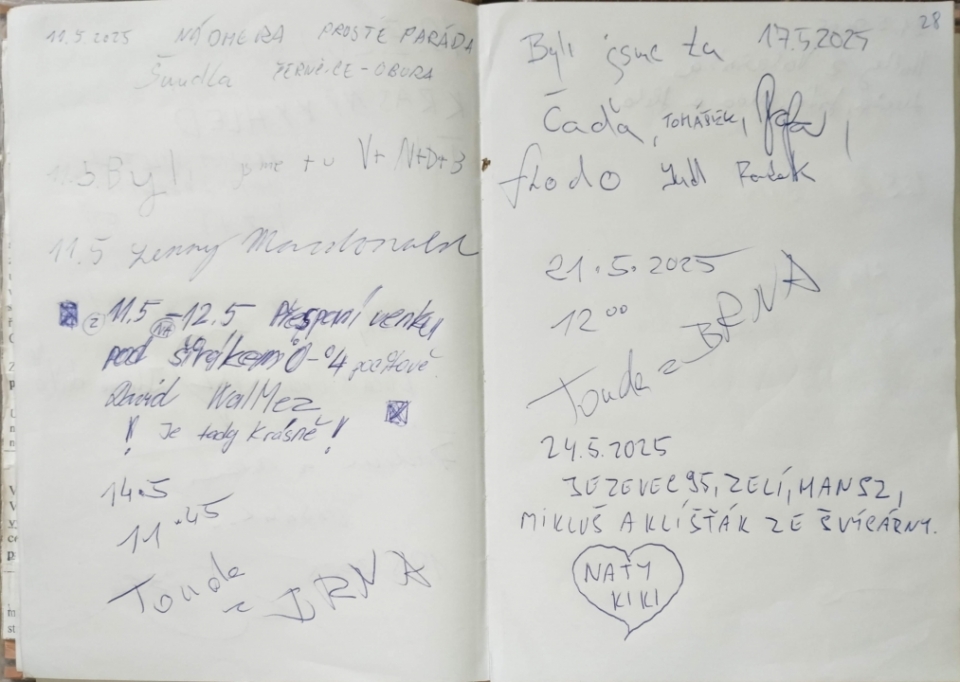 11.5.2025 NÁDHERA PROSTĚ PARÁDA
Šundla ŽERNČICE-OBORA
11.5 Byli jsme tu V+N+D+3
11.5 Lenny Macdonald
z 11.5 - 12.5 Přespaní venku
pod širákem 0-4 pocitově.
David WalMez
! Je tady krásně !
14.5
11.45
Touda
z BRNA
28
Byli jsme tu 17.5.2025
Čaďa, TOMÁŠEK,
frodo Jud Radek
21.5.2025
12 00
Touda z BRNA
24.5.2025
JEZEVEC 95, ZELÍ, MANSZ,
MIKLUŠ A KLÍŠŤÁK ZE ŠVÝCÁRNY.
NAŤY
KIKI